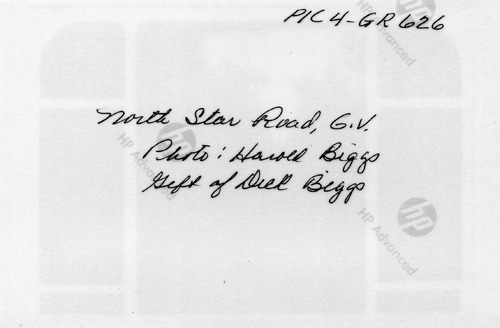 PIC 4-GR626
HP Advanced
North Star Road, G.V.
HP Advanced
Photo: Harold Biggs
Gift of Dick Biggs
HP Advanced